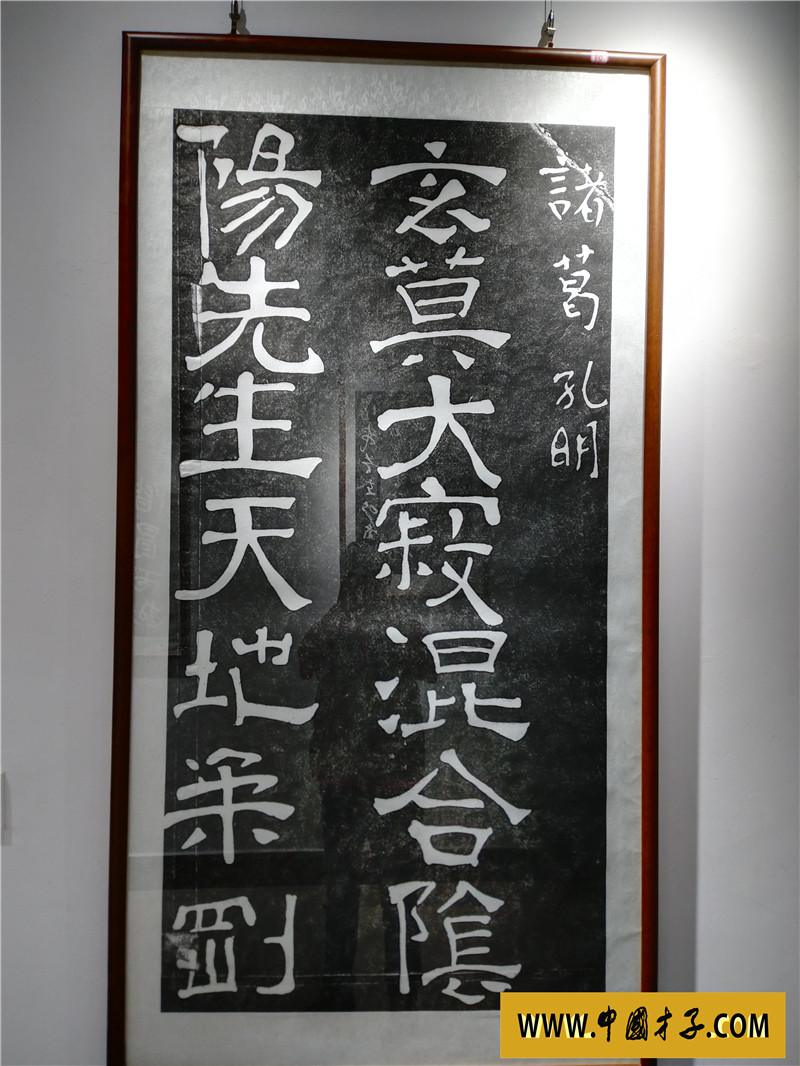 諸葛孔明
玄莫大寂混合陰
陽先生天地柔剛
WWW.中國才子.COM